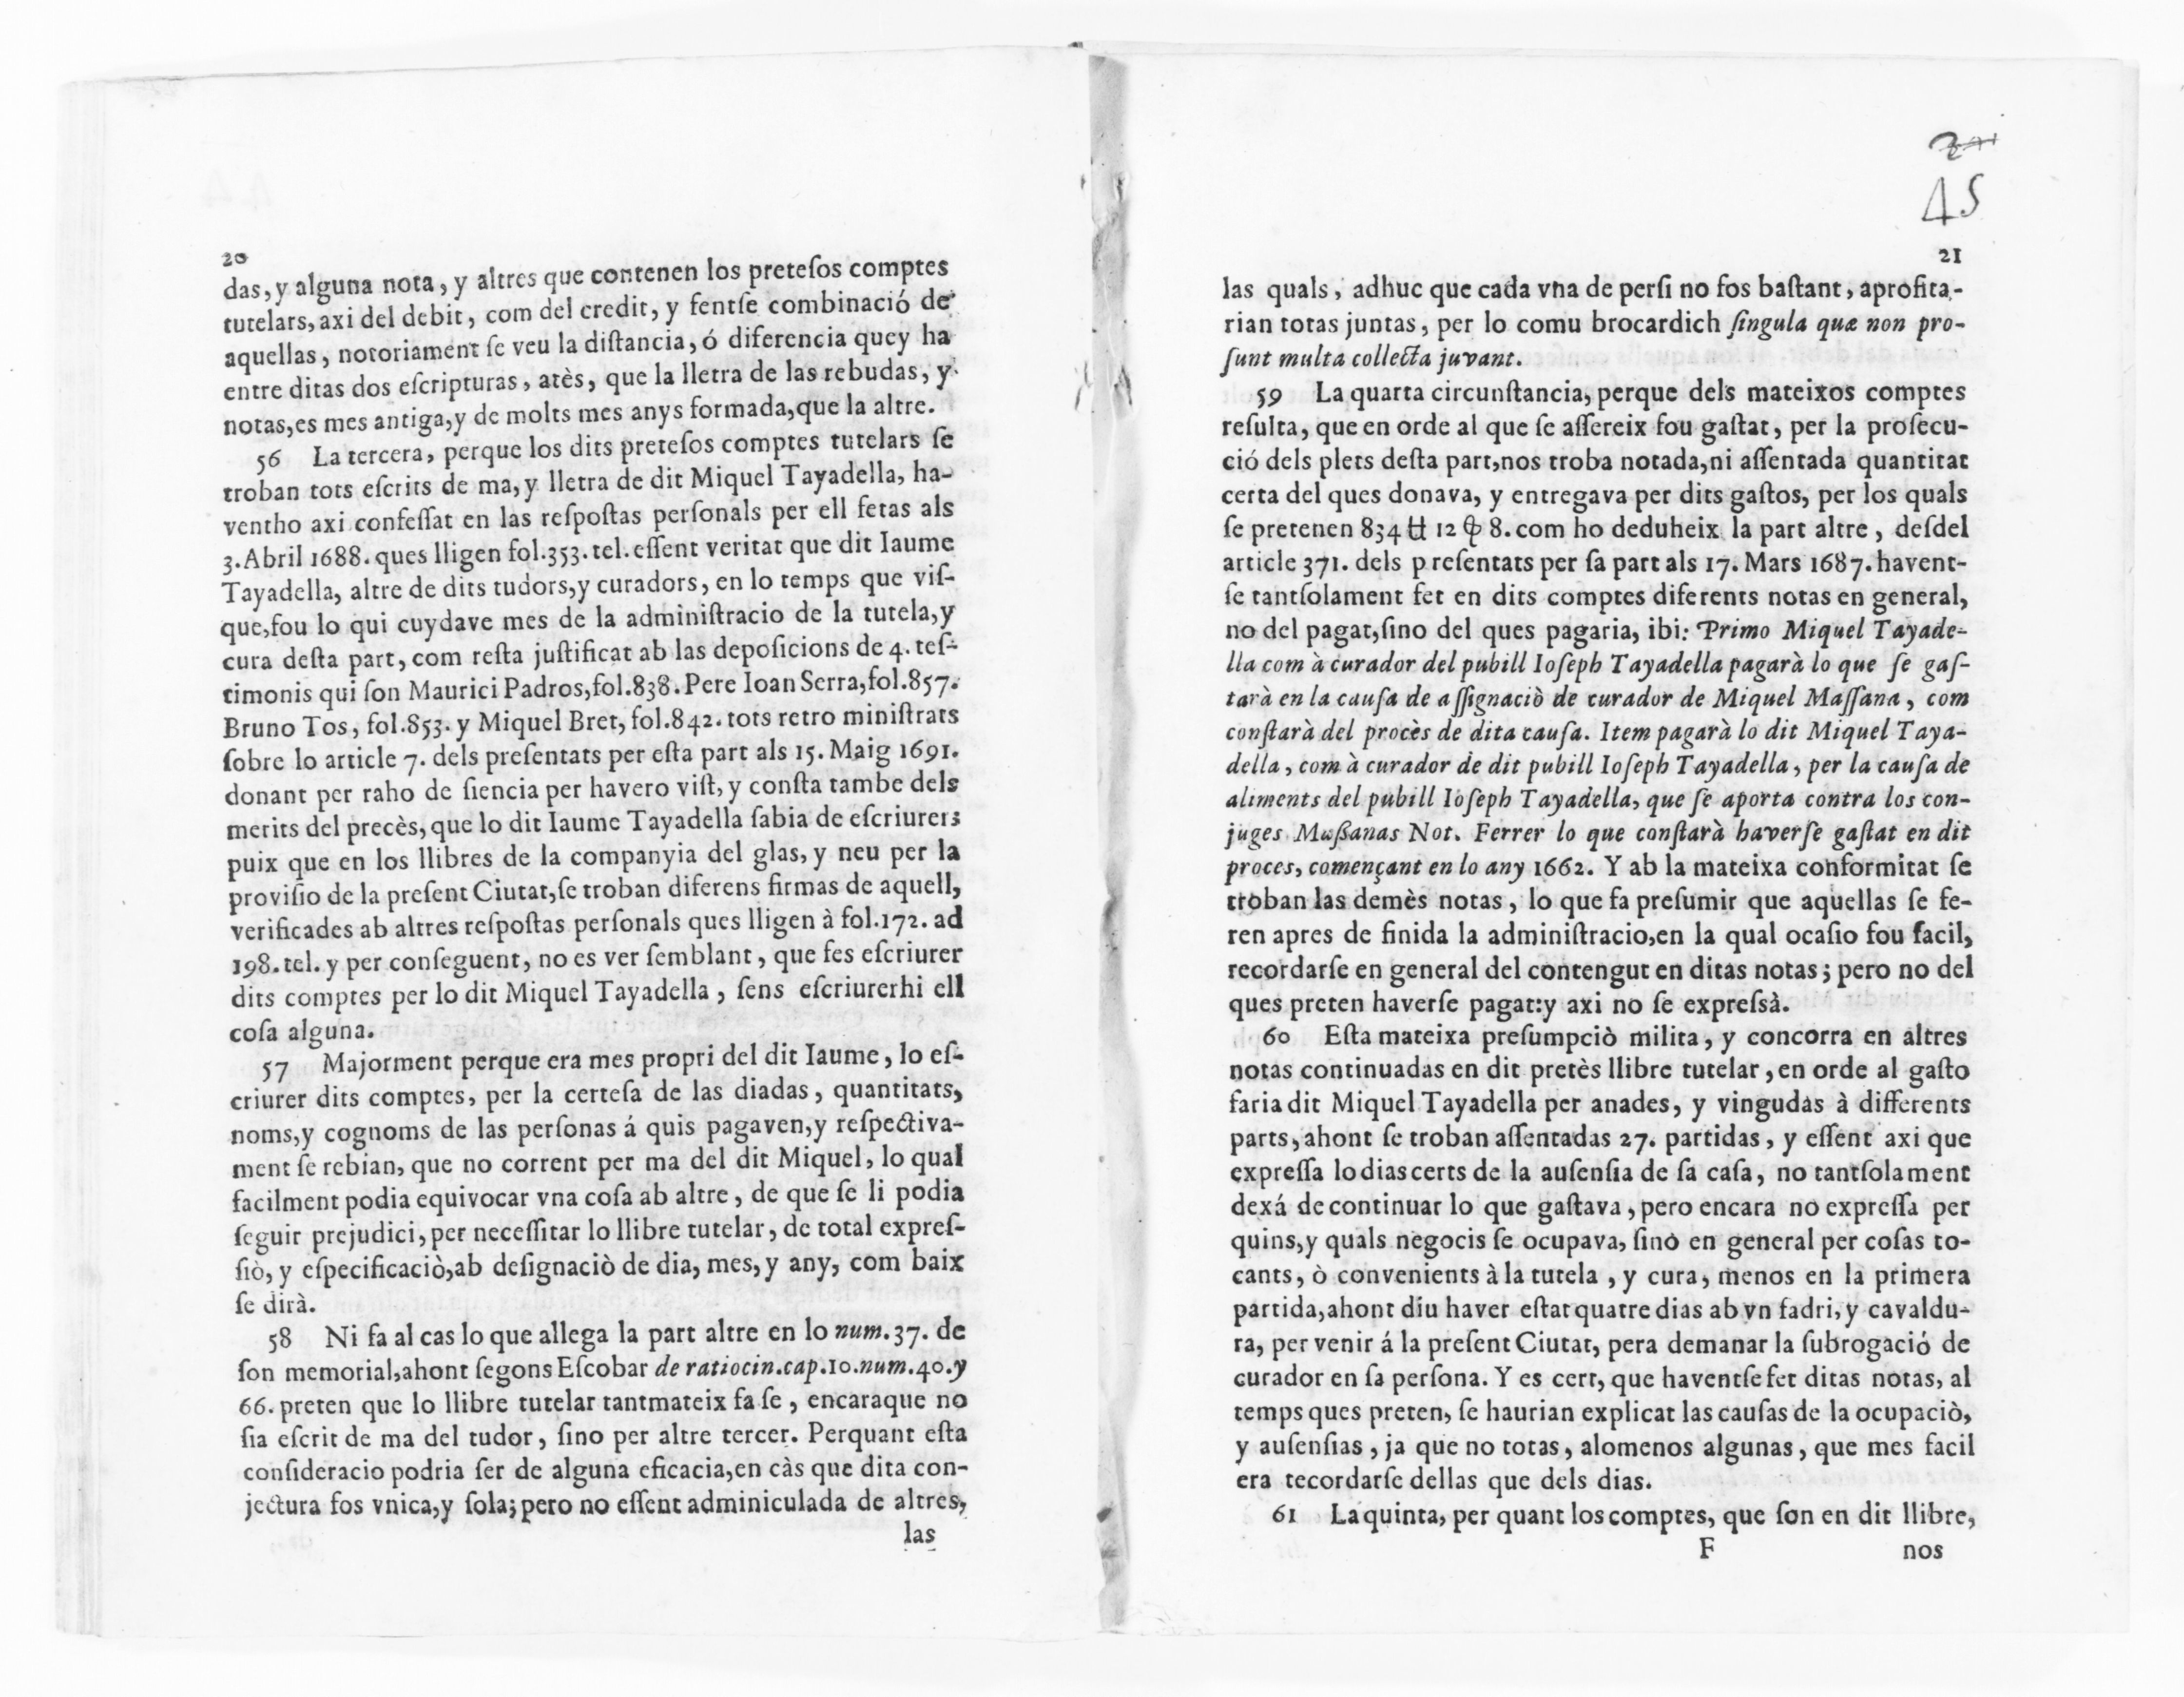 20
das, y alguna nota, y altres que contenen los preteſos comptes
tutelars, axi del debit, com del credit, y fentſe combinació de
aquellas, notoriament ſe veu la diſtancia, ó diferencia quey ha
entre ditas dos eſcripturas, atès, que la lletra de las rebudas, y
notas, es mes antiga, y de molts mes anys formada, que la altre.
56 La tercera, perque los dits preteſos comptes tutelars ſe
troban tots eſcrits de ma, y lletra de dit Miquel Tayadella, ha-
ventho axi confeſſat en las reſpoſtas perſonals per ell fetas als
3. Abril 1688. ques lligen fol. 353. tel. eſſent veritat que dit Iaume
Tayadella, altre de dits tudors, y curadors, en lo temps que viſ-
que, fou lo qui cuydave mes de la adminiſtracio de la tutela, y
cura deſta part, com reſta juſtificat ab las depoſicions de 4. teſ-
timonis qui ſon Maurici Padros, fol. 838. Pere Ioan Serra, fol. 857.
Bruno Tos, fol. 853. y Miquel Bret, fol. 842. tots retro miniſtrats
ſobre lo article 7. dels preſentats per eſta part als 15. Maig 1691.
donant per raho de ſiencia per havero viſt, y conſta tambe dels
merits del precès, que lo dit Iaume Tayadella ſabia de eſcriurer;
puix que en los llibres de la companyia del glas, y neu per la
proviſio de la preſent Ciutat, ſe troban diferens firmas de aquell,
verificades ab altres reſpoſtas perſonals ques lligen à fol. 172. ad
198. tel. y per conſeguent, no es ver ſemblant, que fes eſcriurer
dits comptes per lo dit Miquel Tayadella, ſens eſcriurerhi ell
coſa alguna.
57 Majorment perque era mes propri del dit Iaume, lo eſ-
criurer dits comptes, per la certeſa de las diadas, quantitats,
noms, y cognoms de las perſonas á quis pagaven, y reſpectiva-
ment ſe rebian, que no corrent per ma del dit Miquel, lo qual
facilment podia equivocar vna coſa ab altre, de que ſe li podia
ſeguir prejudici, per neceſſitar lo llibre tutelar, de total expreſ-
ſiò, y eſpecificaciò, ab deſignaciò de dia, mes, y any, com baix
ſe dirà.
58 Ni fa al cas lo que allega la part altre en lo num. 37. de
ſon memorial, ahont ſegons Eſcobar de ratiocin. cap. 10. num. 40. y
66. preten que lo llibre tutelar tantmateix fa ſe, encaraque no
ſia eſcrit de ma del tudor, ſino per altre tercer. Perquant eſta
conſideracio podria ſer de alguna eficacia, en càs que dita con-
jectura fos vnica, y ſola; pero no eſſent adminiculada de altres,
las
45
21
las quals, adhuc que cada vna de perſi no fos baſtant, aprofita-
rian totas juntas, per lo comu brocardich ſingula quæ non pro-
ſunt multa collecta juvant.
59 La quarta circunſtancia, perque dels mateixos comptes
reſulta, que en orde al que ſe aſſereix fou gaſtat, per la proſecu-
ció dels plets deſta part, nos troba notada, ni aſſentada quantitat
certa del ques donava, y entregava per dits gaſtos, per los quals
ſe pretenen 834 ℔ 12 ₷ 8. com ho deduheix la part altre, deſdel
article 371. dels p reſentats per ſa part als 17. Mars 1687. havent-
ſe tantſolament fet en dits comptes diferents notas en general,
no del pagat, ſino del ques pagaria, ibi: Primo Miquel Tayade-
lla com à curador del pubill Ioſeph Tayadella pagarà lo que ſe gaſ-
tarà en la cauſa de aſſignaciò de curador de Miquel Maſſana, com
conſtarà del procès de dita cauſa. Item pagarà lo dit Miquel Taya-
della, com à curador de dit pubill Ioſeph Tayadella, per la cauſa de
aliments del pubill Ioſeph Tayadella, que ſe aporta contra los con-
juges Maßanas Not. Ferrer lo que conſtarà haverſe gaſtat en dit
proces, començant en lo any 1662. Y ab la mateixa conformitat ſe
troban las demès notas, lo que fa preſumir que aquellas ſe fe-
ren apres de finida la adminiſtracio, en la qual ocaſio fou facil,
recordarſe en general del contengut en ditas notas; pero no del
ques preten haverſe pagat: y axi no ſe expreſsà.
60 Eſta mateixa preſumpciò milita, y concorra en altres
notas continuadas en dit pretès llibre tutelar, en orde al gaſto
faria dit Miquel Tayadella per anades, y vingudas à differents
parts, ahont ſe troban aſſentadas 27. partidas, y eſſent axi que
expreſſa lo dias certs de la auſenſia de ſa caſa, no tantſolament
dexá de continuar lo que gaſtava, pero encara no expreſſa per
quins, y quals negocis ſe ocupava, ſinó en general per coſas to-
cants, ò convenients à la tutela, y cura, menos en la primera
partida, ahont diu haver eſtat quatre dias ab vn fadri, y cavaldu-
ra, per venir á la preſent Ciutat, pera demanar la ſubrogació de
curador en ſa perſona. Y es cert, que haventſe fet ditas notas, al
temps ques preten, ſe haurian explicat las cauſas de la ocupaciò,
y auſenſias, ja que no totas, alomenos algunas, que mes facil
era recordarſe dellas que dels dias.
61 La quinta, per quant los comptes, que ſon en dit llibre,
F nos